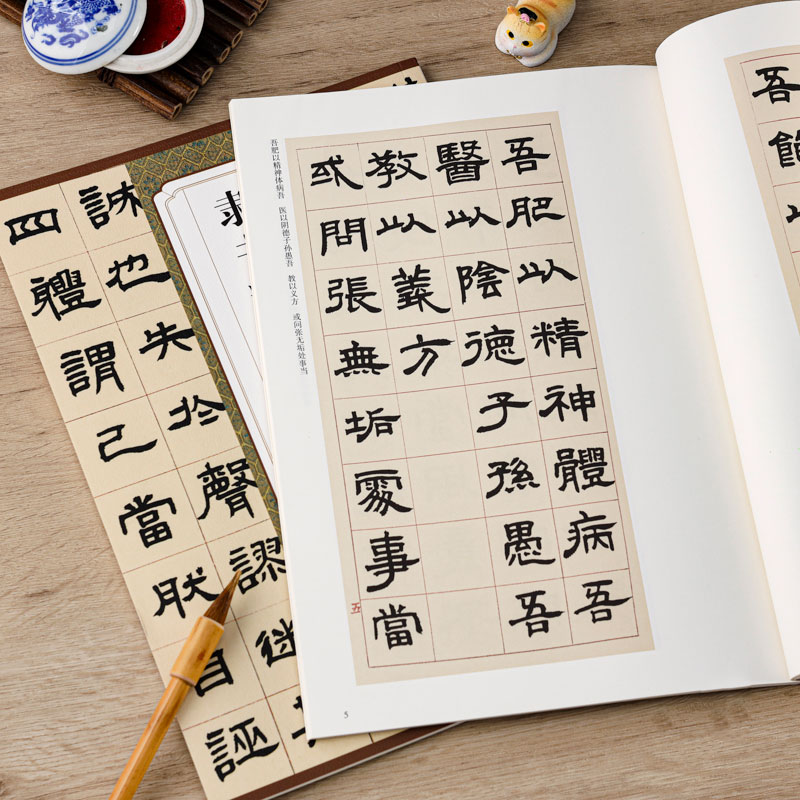 吾肥以精神體病吾
醫以陰德子孫愚吾
教以義方
或問張無垢處事當
五
吾肥以精神体病吾　医以阴德子孙愚吾　教以义方　或问张无垢处事当
5
吾飽
誠也失於聲謬迷
四體謂己當肰自誣